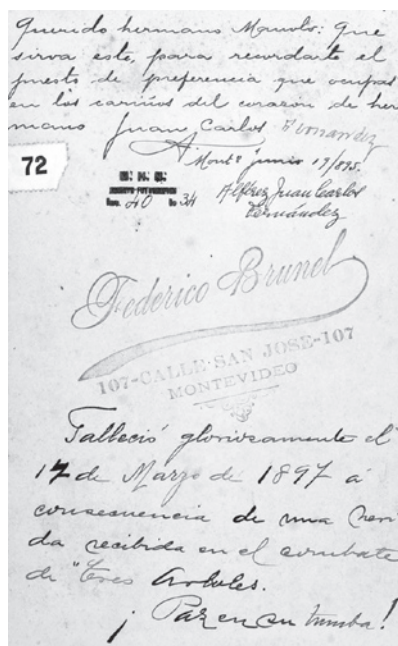 Querido hermano Manolo: Que
sirva este, para recordarte el
puesto de preferencia que ocupas
en los cariños del corazon de her
mano Juan Carlos Fernandez
Montº Junio 19/895.
72
M. H. N.
Inv. 40 Io 34
Alférez Juan Carlos
Fernández
Federico Brunel
107-CALLE SAN JOSE-107
MONTEVIDEO
Falleció gloriosamente el
17 de Marzo de 1897 á
consecuencia de una heri
da recibida en el combate
de "Tres Arboles.
¡ Paz en su tumba!